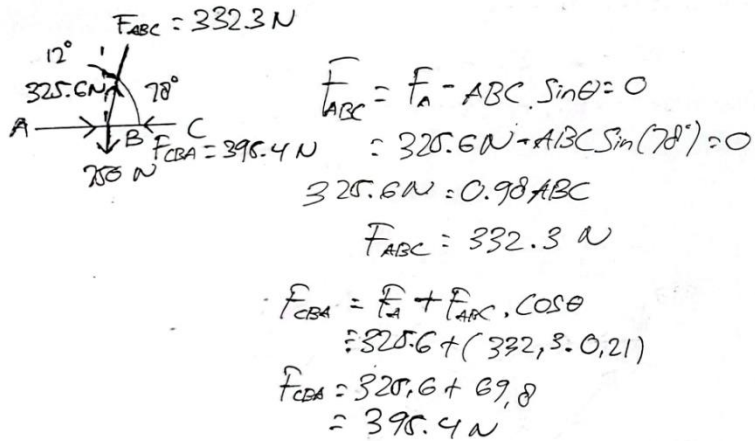 F_ABC = 332.3 N
12°
325.6N 78°
A B C
F_CBA = 395.4 N
250 N
F_ABC = F_A - ABC. Sinθ = 0
= 325.6N - ABC Sin(78°) = 0
325.6N = 0.98 ABC
F_ABC = 332.3 N
F_CBA = F_A + F_ABC . COSθ
= 325.6 + (332,3. 0,21)
F_CBA = 325,6 + 69,8
= 395.4 N